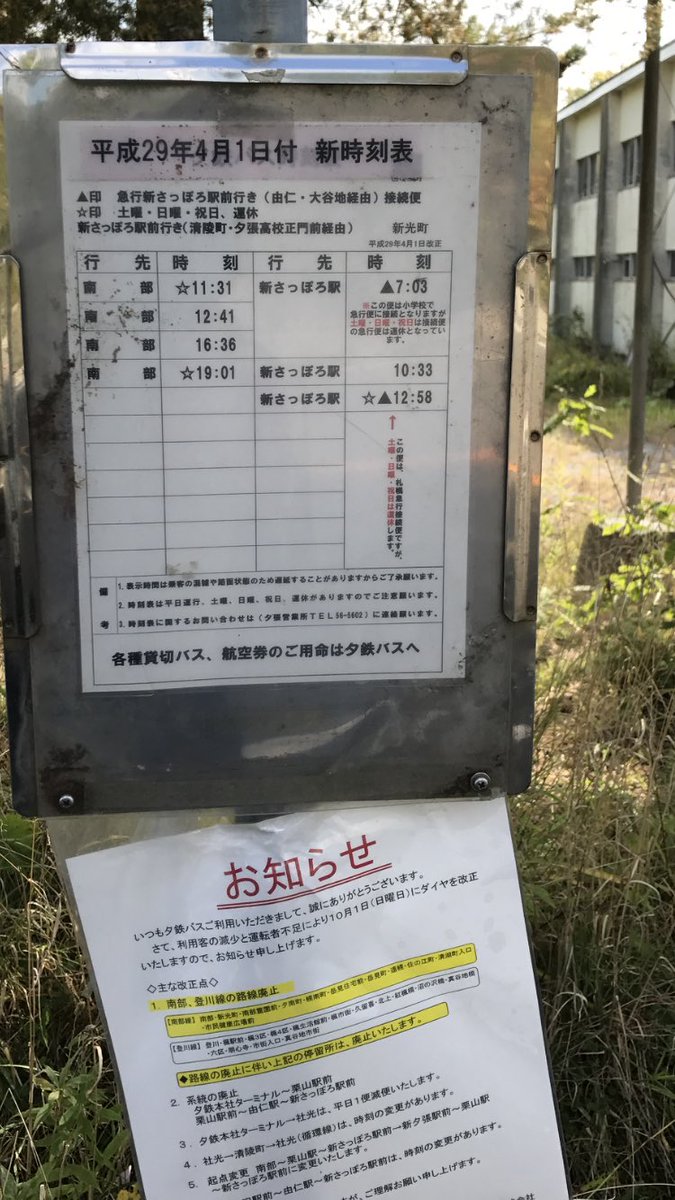 平成29年4月1日付 新時刻表
▲印 急行新さっぽろ駅前行き（由仁・大谷地経由）接続便
☆印 土曜・日曜・祝日、運休
新さっぽろ駅前行き（清陵町・夕張高校正門前経由） 新光町
平成29年4月1日改正
行先 時刻 行先 時刻
南部 ☆11:31 新さっぽろ駅 ▲7:03
※この便は小学校で
急行便に接続となりますが
土曜・日曜・祝日は接続便
の急行便は運休となってい
ます。
南部 12:41
南部 16:36
南部 ☆19:01 新さっぽろ駅 10:33
新さっぽろ駅 ☆▲12:58
↑
この便は、札幌急行接続便ですが、
土曜・日曜・祝日は運休します。
備考
1.表示時間は乗客の混雑や路面状態のため遅延することがありますからご了承願います。
2.時刻表は平日運行、土曜、日曜、祝日、運休がありますのでご注意願います。
3.時刻表に関するお問い合わせは（夕張営業所TEL56-5602）に連絡願います。
各種貸切バス、航空券のご用命は夕鉄バスへ
お知らせ
いつも夕鉄バスご利用いただきまして、誠にありがとうございます。
さて、利用客の減少と運転者不足により10月1日(日曜日)にダイヤを改正
いたしますので、お知らせ申し上げます。
◇主な改正点◇
1. 南部、登川線の路線廃止
【南部線】南部・新光町・南部菫園前・夕南町・樺南町・岳見住宅前・岳見町・遠幌・住の江町・清湖町入口
・市民健康広場前
【登川線】登川・楓駅前・楓3区・楓4区・楓生活館前・楓市街・久留喜・北上・紅楓橋・沼の沢橋・真谷地橋
・六区・宗心寺・市街入口・真谷地市街
◆路線の廃止に伴い上記の停留所は、廃止いたします。
2. 系統の廃止
夕鉄本社ターミナル～栗山駅前
栗山駅前～由仁駅～新さっぽろ駅前
3. 夕鉄本社ターミナル→社光は、平日1便減便いたします。
4. 社光→清陵町→社光(循環線)は、時刻の変更があります。
5. 起点変更 南部～栗山駅前～新さっぽろ駅前→新夕張駅前～栗山駅
～新さっぽろ駅前に変更いたします。
駅前～由仁～新さっぽろ駅前は、時刻の変更があります。
が、ご理解お願い申し上げます。